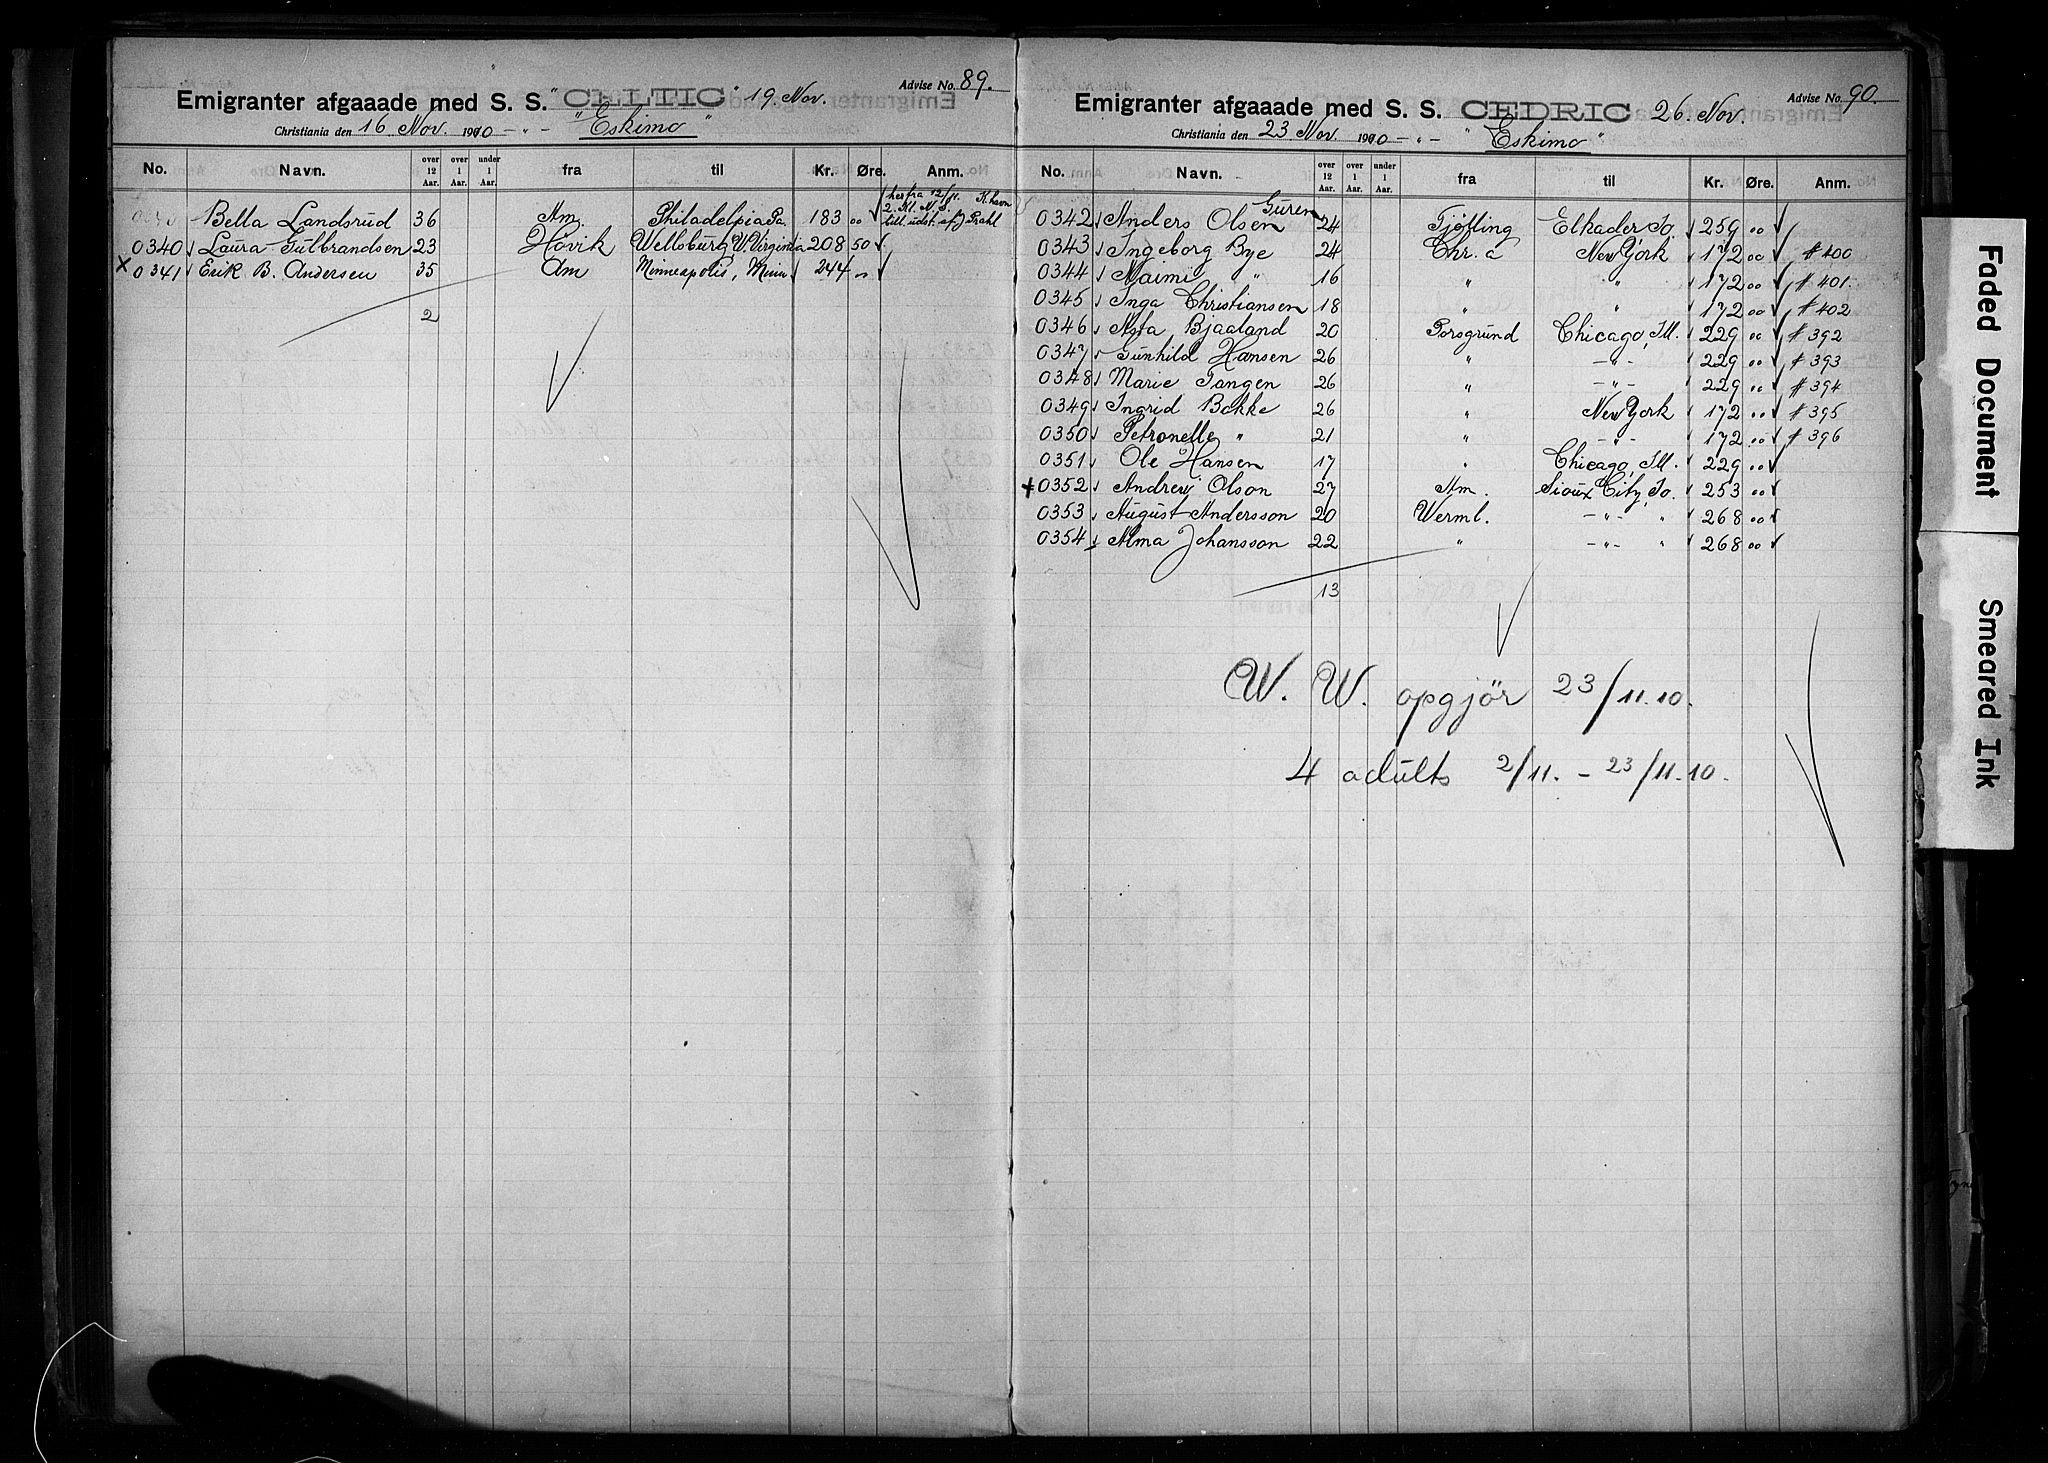 Advise No. 89.
Emigranter afgaaade med S. S. "CELTIC" 19. Nov.
Christiania den 16 Nov. 1910 - " - "Eskimo"
No. Navn. over 12 Aar. over 1 Aar. under 1 Aar. fra til Kr. Øre. Anm.
herfra 12/11. K.havn
2. Kl. N. S.
Bella Landsrud 36 Am. Philadelpia Pa. 183 00 till. udst. af J Prahl
0340 Laura Gulbrandsen 23 Høvik Wellsburg W Virginia 208 50
x 0341 Erik B. Andersen 35 Am Minneapolis, Minn 244 "
2
Advise No. 90.
Emigranter afgaaade med S. S. CEDRIC 26. Nov.
Christiania den 23 Nov. 1910 - " - "Eskimo"
No. Navn. over 12 Aar. over 1 Aar. under 1 Aar. fra til Kr. Øre. Anm.
Guren
0342 Anders Olsen 24 Tjøtling Elkader Io. 259 00
0343 Ingeborg Bye 24 Chr. a New York 172 00 # 400
0344 Naimi " 16 " " 172 00 # 401.
0345 Inga Christiansen 18 " " 172 00 # 402
0346 Asta Bjaaland 20 Porsgrund Chicago, Ill. 229 00 # 392
0347 Gunhild Hansen 26 " - " - 229 00 # 393
0348 Marie Tangen 26 " - " - 229 00 # 394
0349 Ingrid Bakke 26 " New York 172 00 # 395
0350 Petronelle " 21 " - " - 172 00 # 396
0351 Ole Hansen 17 " Chicago, Ill. 229 00
+ 0352 Andrew Olson 27 Am. Sioux City, Io. 253 00
0353 August Andersson 20 Werml. - " - " 268 00
0354 Alma Johansson 22 " - " - " 268 00
13
W. W. opgjør 23/11.10.
4 adults 2/11. - 23/11.10.
Faded Document
Smeared Ink